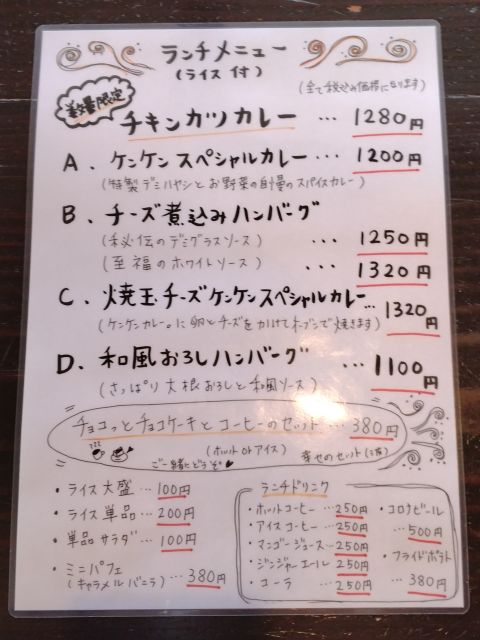 ランチメニュー
(ライス 付)
(全て税込み価格になります)
数量限定
チキンカツカレー … 1280円
A. ケンケンスペシャルカレー … 1200円
(特製デミハヤシとお野菜の自慢のスパイスカレー)
B. チーズ煮込みハンバーグ
(秘伝のデミグラスソース) … 1250円
(至福のホワイトソース) … 1320円
C. 焼玉チーズケンケンスペシャルカレー… 1320円
(ケンケンカレー。に卵とチーズをかけてオーブンで焼きます)
D. 和風おろしハンバーグ … 1100円
(さっぱり大根おろしと和風ソース)
チョコっとチョコケーキとコーヒーのセット … 380円
(ホット or アイス)
ご一緒にどうぞ
幸せのセット
・ライス大盛 … 100円
・ライス単品 … 200円
・単品サラダ … 100円
・ミニパフェ
(キャラメル バニラ) … 380円
ランチドリンク
・ホットコーヒー … 250円
・アイスコーヒー … 250円
・マンゴージュース … 250円
・ジンジャーエール … 250円
・コーラ … 250円
・コロナビール
… 500円
・フライドポテト
… 380円